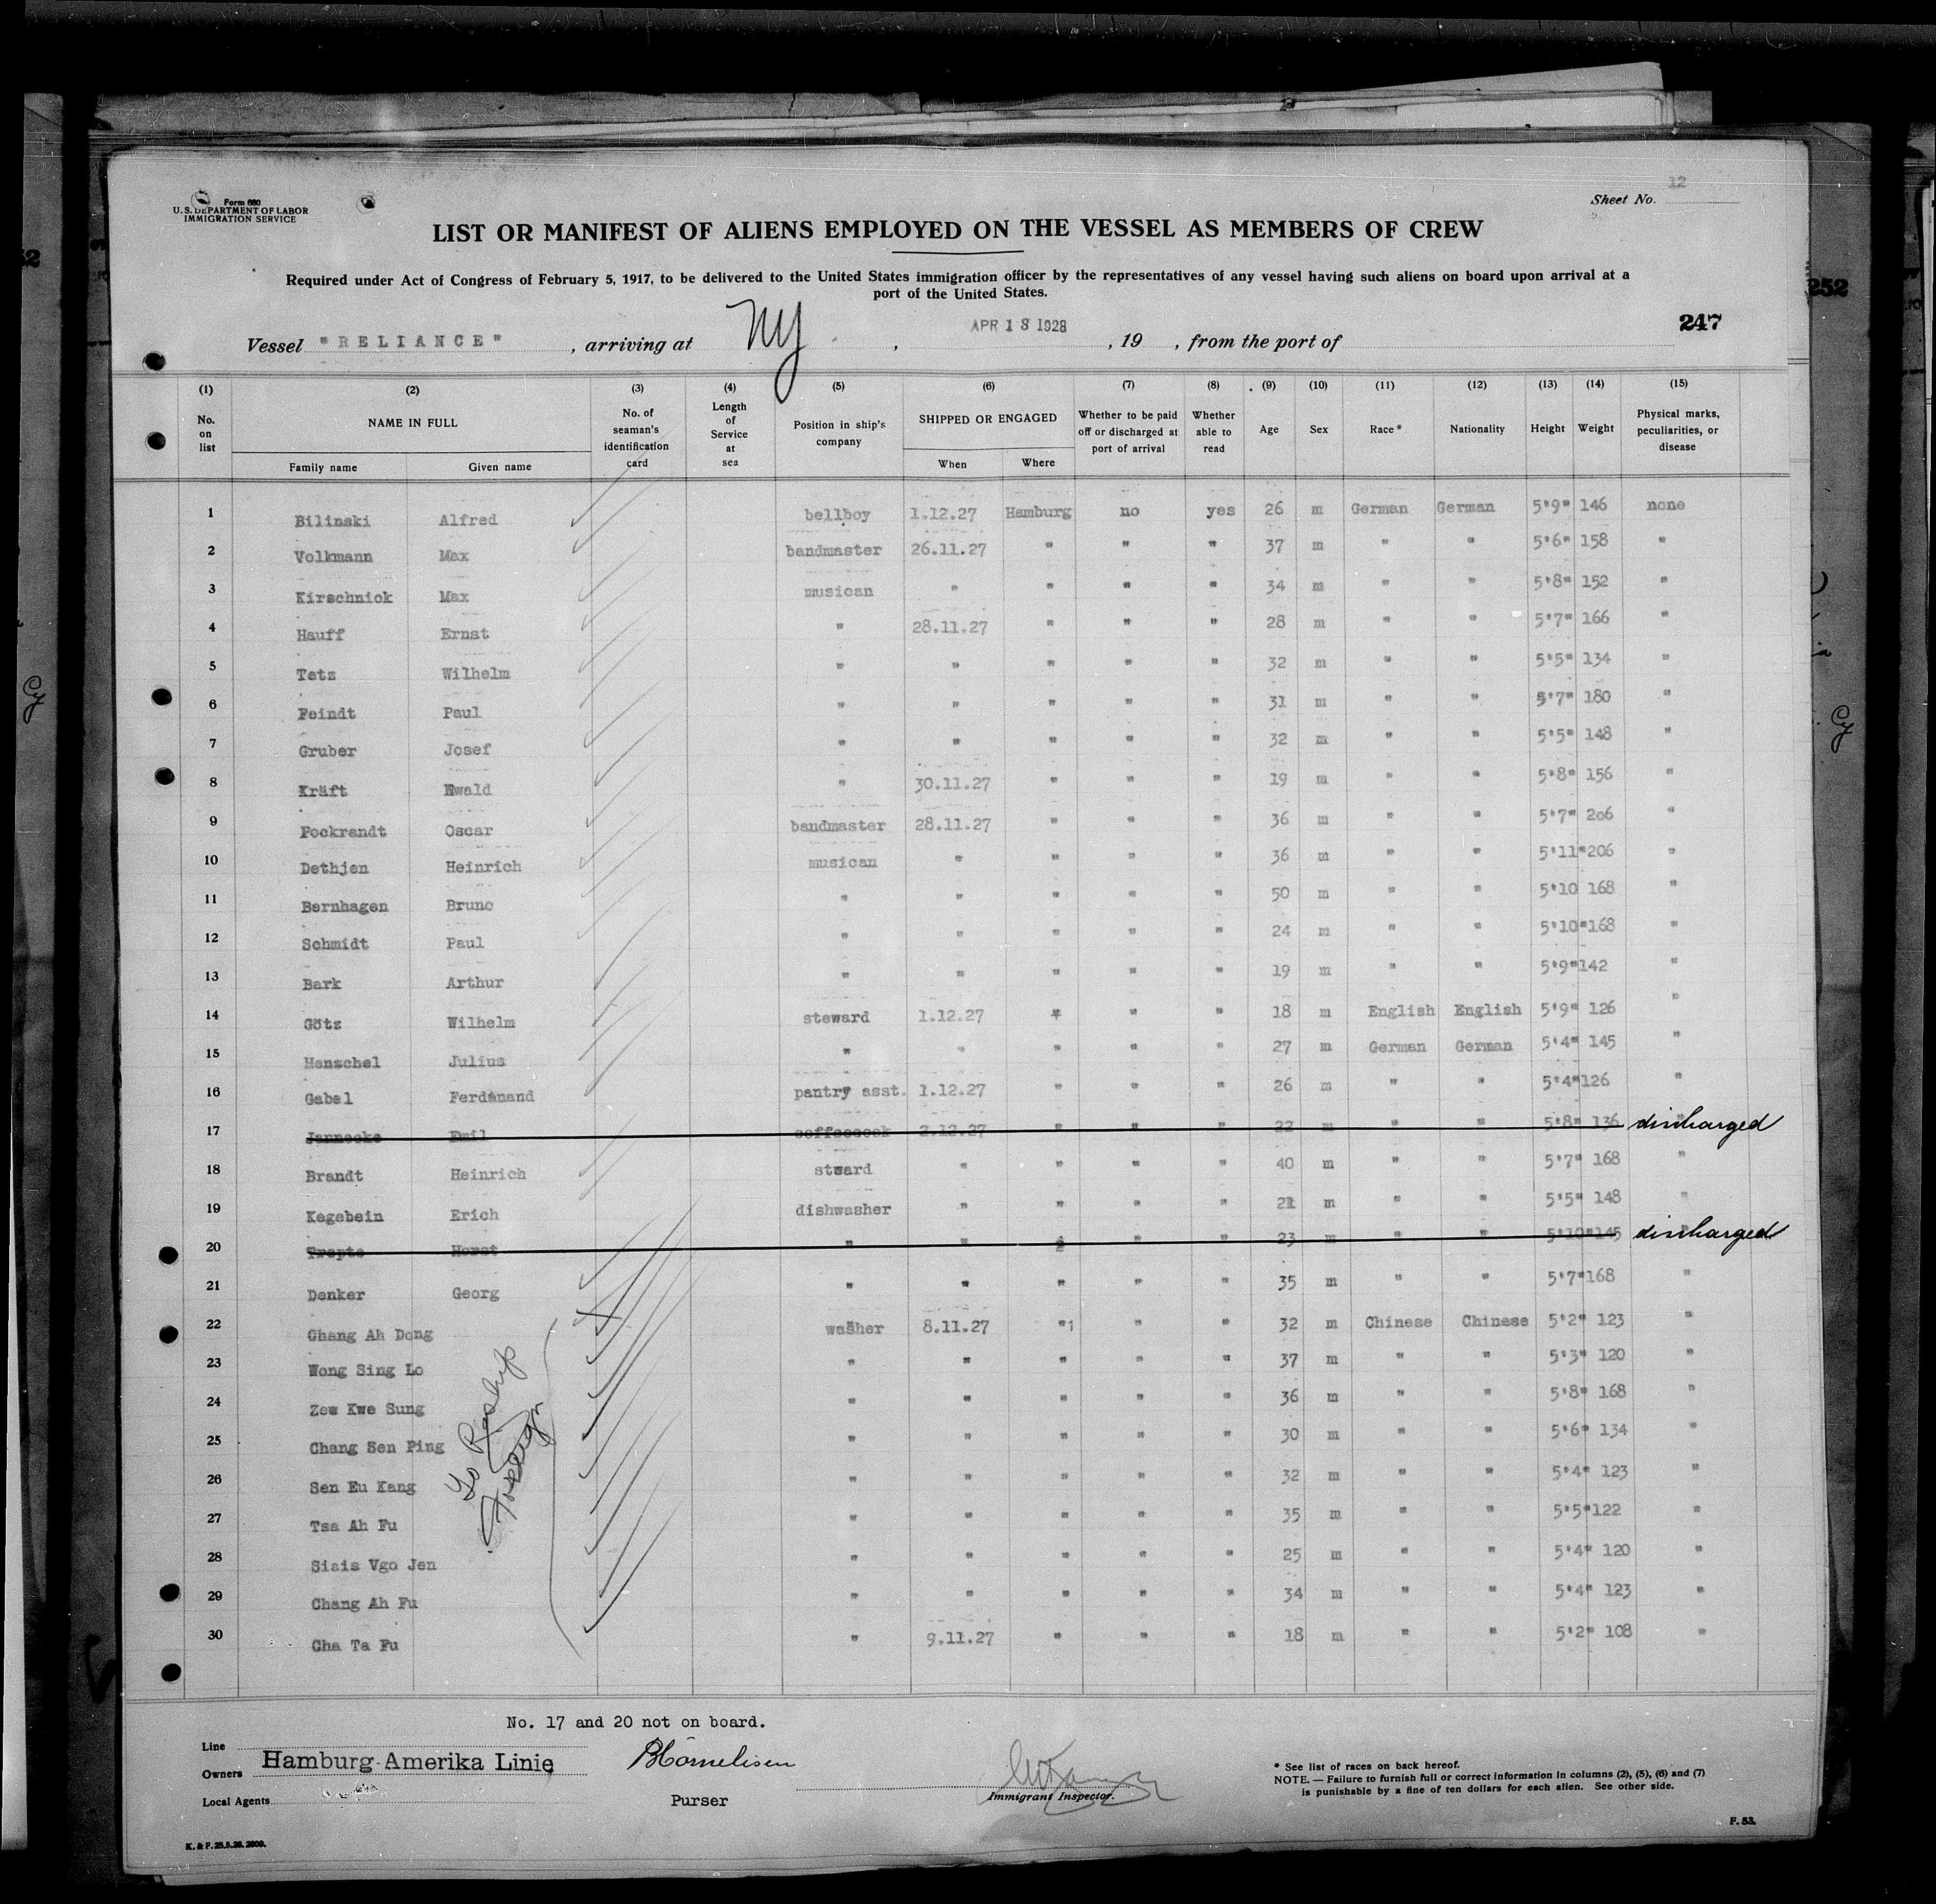 12
Form 680
U. S. DEPARTMENT OF LABOR
IMMIGRATION SERVICE
Sheet No.
LIST OR MANIFEST OF ALIENS EMPLOYED ON THE VESSEL AS MEMBERS OF CREW
Required under Act of Congress of February 5, 1917, to be delivered to the United States immigration officer by the representatives of any vessel having such aliens on board upon arrival at a
port of the United States.
252
247
Vessel "RELIANCE" , arriving at NY , APR 18 1928 , 19 , from the port of
(1) (2) (3) (4) (5) (6) (7) (8) (9) (10) (11) (12) (13) (14) (15)
No. on list NAME IN FULL Family name Given name No. of seaman's identification card Length of Service at sea Position in ship's company SHIPPED OR ENGAGED When Where Whether to be paid off or discharged at port of arrival Whether able to read Age Sex Race * Nationality Height Weight Physical marks, peculiarities, or disease
1 Bilinski Alfred bellboy 1.12.27 Hamburg no yes 26 m German German 5'9" 146 none
2 Volkmann Max bandmaster 26.11.27 " " " 37 m " " 5'6" 158 "
3 Kirschniok Max musican " " " " 34 m " " 5'8" 152 "
4 Hauff Ernst " 28.11.27 " " " 28 m " " 5'7" 166 "
5 Tetz Wilhelm " " " " " 32 m " " 5'5" 134 "
6 Feindt Paul " " " " " 31 m " " 5'7" 180 "
7 Gruber Josef " " " " " 32 m " " 5'5" 148 "
8 Kräft Ewald " 30.11.27 " " " 19 m " " 5'8" 156 "
9 Pockrandt Oscar bandmaster 28.11.27 " " " 36 m " " 5'7" 206 "
10 Dethjen Heinrich musican " " " " 36 m " " 5'11" 206 "
11 Bernhagen Bruno " " " " " 50 m " " 5'10 168 "
12 Schmidt Paul " " " " " 24 m " " 5'10" 168 "
13 Bark Arthur " " " " " 19 m " " 5'9" 142 "
14 Götz Wilhelm steward 1.12.27 " " " 18 m English English 5'9" 126 "
15 Henschel Julius " " " " " 27 m German German 5'4" 145 "
16 Gabel Ferdinand pantry asst. 1.12.27 " " " 26 m " " 5'4" 126 "
17 Jannecke Emil coffeecook 2.12.27 " " " 22 m " " 5'8" 136 " discharged
18 Brandt Heinrich stward " " " " 40 m " " 5'7" 168 "
19 Kegebein Erich dishwasher " " " " 21 m " " 5'5" 148 "
20 Trepte Horst " " " " " 23 m " " 5'10" 145 " discharged
21 Denker Georg " " " " " 35 m " " 5'7" 168 "
22 Chang Ah Dong washer 8.11.27 " " " 32 m Chinese Chinese 5'2" 123 "
23 Wong Sing Lo " " " " " 37 m " " 5'3" 120 "
24 Zee Kwe Sung " " " " " 36 m " " 5'8" 168 "
25 Chang Sen Ping " " " " " 30 m " " 5'6" 134 "
26 Sen Eu Kang " " " " " 32 m " " 5'4" 123 "
27 Tsa Ah Fu " " " " " 35 m " " 5'5" 122 "
28 Siais Vgo Jen " " " " " 25 m " " 5'4" 120 "
29 Chang Ah Fu " " " " " 34 m " " 5'4" 123 "
30 Cha Ta Fu " 9.11.27 " " " 18 m " " 5'2" 108 "
To Reship
Foreign
No. 17 and 20 not on board.
Line
Owners Hamburg-Amerika Linie
Local Agents
Purser
Immigrant Inspector.
* See list of races on back hereof.
NOTE. — Failure to furnish full or correct information in columns (2), (5), (6) and (7)
is punishable by a fine of ten dollars for each alien. See other side.
K. & F. 23.5.26. 2000.
F. 53.